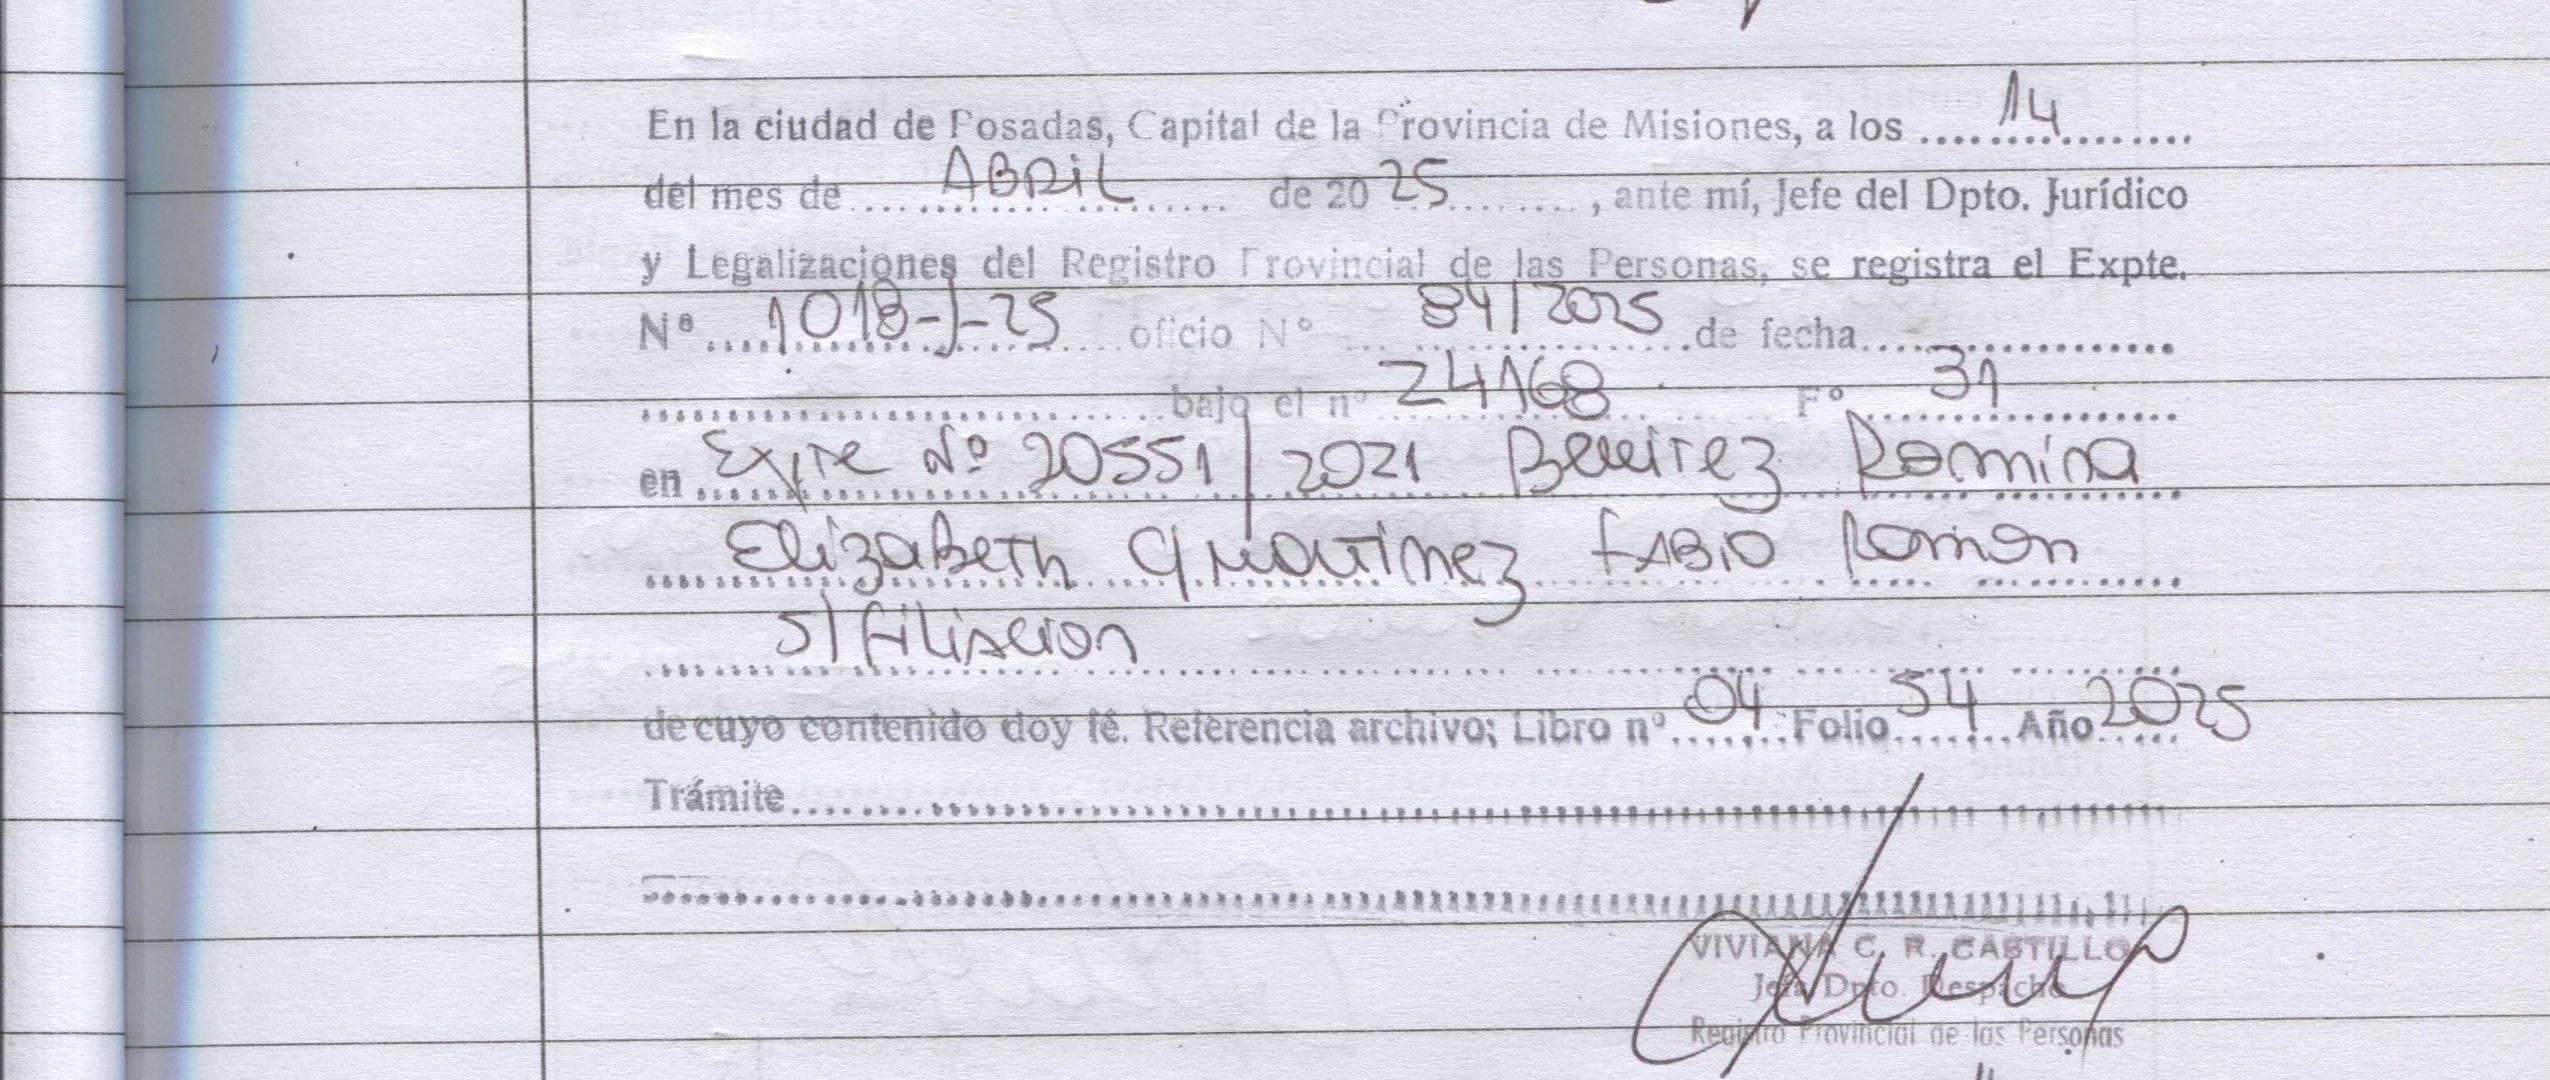 En la ciudad de Posadas, Capital de la Provincia de Misiones, a los 14
del mes de ABRIL de 2025, ante mí, Jefe del Dpto. Jurídico
y Legalizaciones del Registro Provincial de las Personas, se registra el Expte.
Nº 1018-J-25 oficio Nº 84/2025 de fecha
bajo el nº 24168 Fº 31
en Expte Nº 20551/2021 Benitez Romina
Elizabeth c/ Martinez FABIO Ramon
s/ filiacion
de cuyo contenido doy fé. Referencia archivo; Libro nº 04 Folio 54 Año 2025
Trámite
VIVIANA C. R. CASTILLO
Jefa Dpto. Despacho
Registro Provincial de las Personas